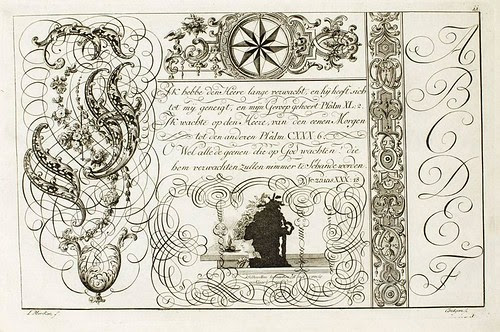 IK hebbe den Heere lange verwacht, en hy heeft sich
tot my geneigt, en myn Geroep gehoort Psalm XL. 2.
IK wachte op den Heere, van den eenen Morgen
tot den anderen Psalm CXXX 6.
Wel alle de geenen die op God wachten, die
hem verwachten zullen nimmer te Schande worden
XXX. 18
A
B
C
D
E
F